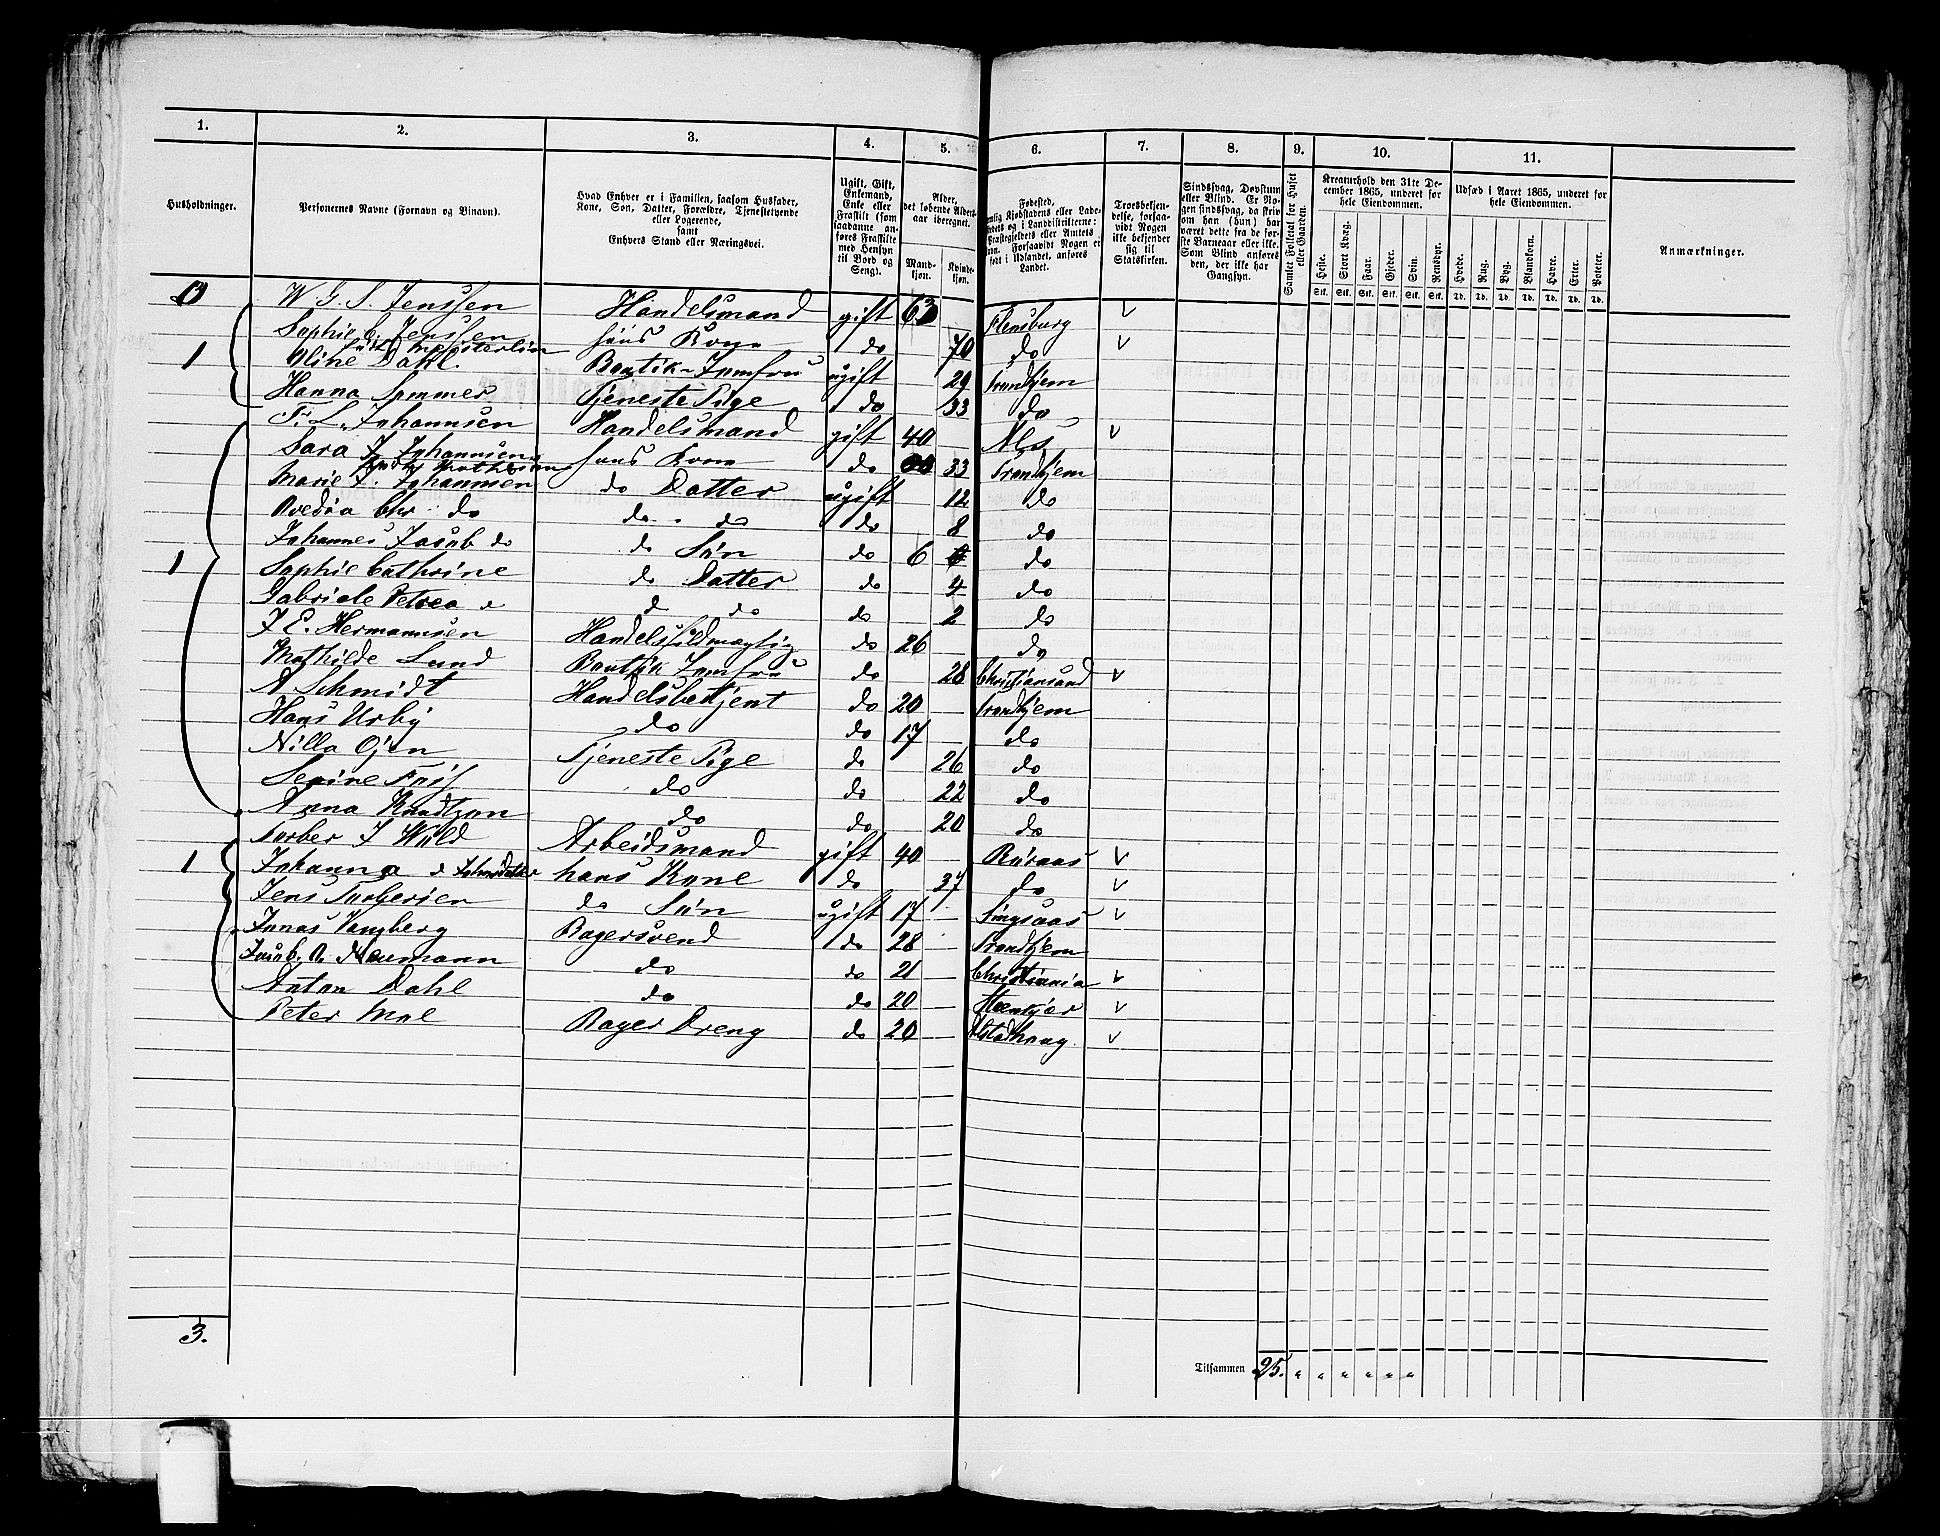 1. 2. 3. 4. 5. 6. 7. 8. 9. 10. 11.
Husholdninger.
Personernes Navne (Fornavn og Binavn).
Hvad Enhver er i Familien, saasom Husfader,
Kone, Søn, Datter, Forældre, Tjenestetyende
eller Logerende,
samt
Enhvers Stand eller Næringsvei.
Ugift, Gift,
Enkemand,
Enke eller
Fraskilt (som
saadanne an-
føres Fraskilte
med Hensyn
til Bord og
Seng).
Alder,
det løbende Alders-
aar iberegnet.
Mand-
kjøn.
Kvinde-
kjøn.
Fødested,
Troesbekjen-
delse, forsaa-
vidt Nogen
ikke bekjender
sig til
Statskirken.
Sindssvag, Døvstum
eller Blind. Er No-
gen sindssvag, da skriv
om han (hun) har
været dette fra de før-
ste Barneaar eller ikke.
Som Blind anføres
den, der ikke har
Gangsyn.
Samlet Folketal for Huset
eller Gaarden.
Kreaturhold den 31te De-
cember 1865, underet for
hele Eiendommen.
Heste. Stort Kvæg. Faar. Gjeder. Svin. Rensdyr.
Stk. Stk. Stk. Stk. Stk. Stk.
Udsæd i Aaret 1865, underet for
hele Eiendommen.
Hvede. Rug. Byg. Blandkorn. Havre. Erter. Poteter.
Td. Td. Td. Td. Td. Td. Td.
Anmærkninger.
W. G. S. Jenssen Handelsmand gift 63 Flensburg v
Sophie C. Jenssen hans Kone do 70 do v
1 Oline Dahl. Boutik-Jomfru ugift 29 Trondhjem
Hanna Sommer Tjeneste Pige do 33 do
F. L. Johannsen Handelsmand gift 40 Als v
Sara J. Johannsen hans Kone do 33 Trondhjem
Marie J. Johannsen do Datter ugift 12 do
Ovedia Chr. do do do do 8 do
Johannes Jacob do do Søn do 6 do
1 Sophie Cathrine do Datter do 4 do
Gabriele Petrea d d do do 2 do
J E. Hermannsen Handelsfuldmægtig do 26 do
Mathilde Lund Boutik Jomfru do 28 Christiansand v
A Schmidt Handelsbetjent do 20 Trondhjem
Hans Urby do do 17 do
Nilla Ojen Tjeneste Pige do 26 do
Serine do do 22 do
Anna Knudtzon do do 20 do
Torber J Wold Arbeidsmand gift 40 Røraas v
1 Johanna d Johnsdatter hans Kone do 37 do v
Jens Torbersen do Søn ugift 17 Singsaas v
Jonas Vangberg Bagersvend do 28 Trondhjem
Jacob. A Neumann do do 21 Christiania v
Anton Dahl do do 20 v
Peter Moe Bager Dreng do 20 Alstadhoug v
3.
Tilsammen 25. " " " " " "